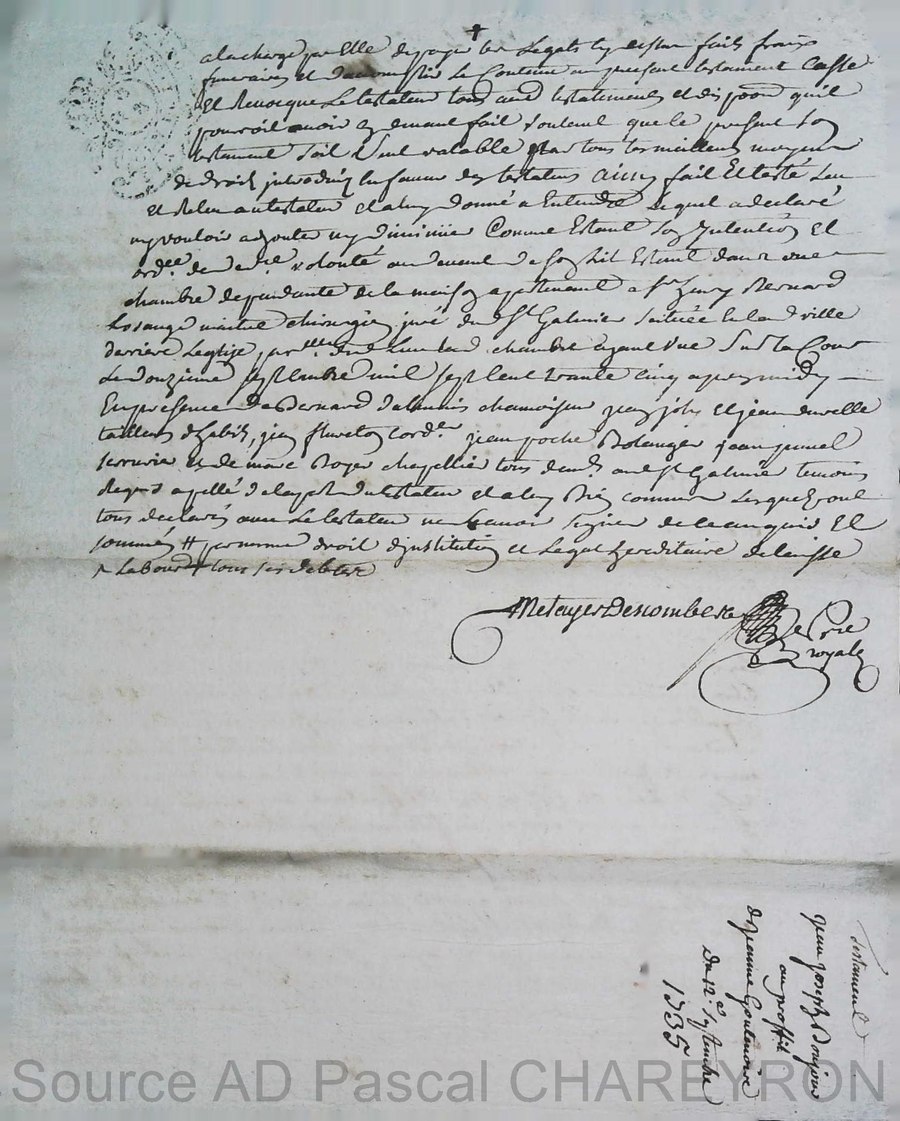 †
a la charge par Elle de payer les Legats cy dessus faits fraix
funeraires et daccomplir Le Contenu au present testament Casse
et Revocque Le testateur tous autres testaments et dispoons quil
pourroit avoir cy devant fait voulant que le present son
testament soit seul valable par tous les meilleurs moyens
de droit en faveur des testatos ainsy fait Et testé Leu
et Releu au testateur et a luy donné a Entendre Lequel a declaré
ny vouloir adjouter ny diminüer Comme Estant son Intention Et
ordre de dre volonté au devant de son lit Estant dans une
chambre dependante de la maison apartenant a Sr Bernard
Losange maitre chirurgien juré de St Galmier scituée En lad ville
derriere Leglise chambre ayant vüe Sur la Cour
Le douzieme septembre mil sept Cent trante cinq apres midy
En presence de Bernard chamoiseur jean joly et jean
tailleurs dhabits, cordr jean poché Bolanger jean
serrurier et de marc Roger chapellier tous dud St Galmier temoins
Requis apellé de la part du testateur et a luy Bien connus Lesquels ont
tous declarés avec Le testateur ne scavoir signer de ce Enquis Et
sommés # par meme droit dinstitution et Legat hereditaire delaisse
a Labourd # tous ses debtes
Metayer Descombes
Nre Royale
Testament
jean joseph Donjon
au proffit
de jeanne Goutenoire
Du 12e Septembre
1735
Source AD Pascal CHAREYRON